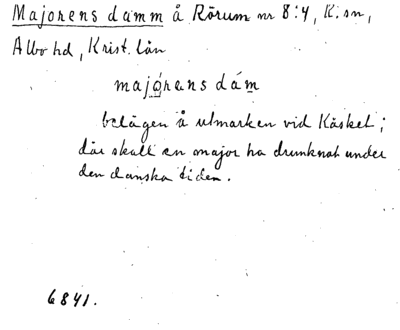 Majorens damm å Rörum nr 8:4, K. sn,
Albo hd, Krist. län
majórens dám
belägen å utmarken vid Käsket;
där skall en major ha drunknat under
den danska tiden.
6841.